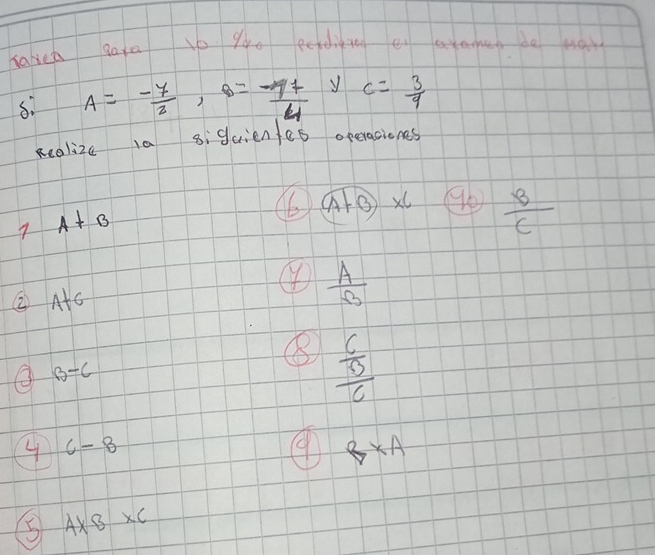 tarea para 10 perdieron el examen de
Si A = -7/2, B = y C = 3/9
Realize la siguientes operaciones
1 A + B
2 A+C
3 B-C
4 C - B
5 A x B x C
6 (A+B) x C
7 A/B
8 C/B/C
9 B x A
10 B/C